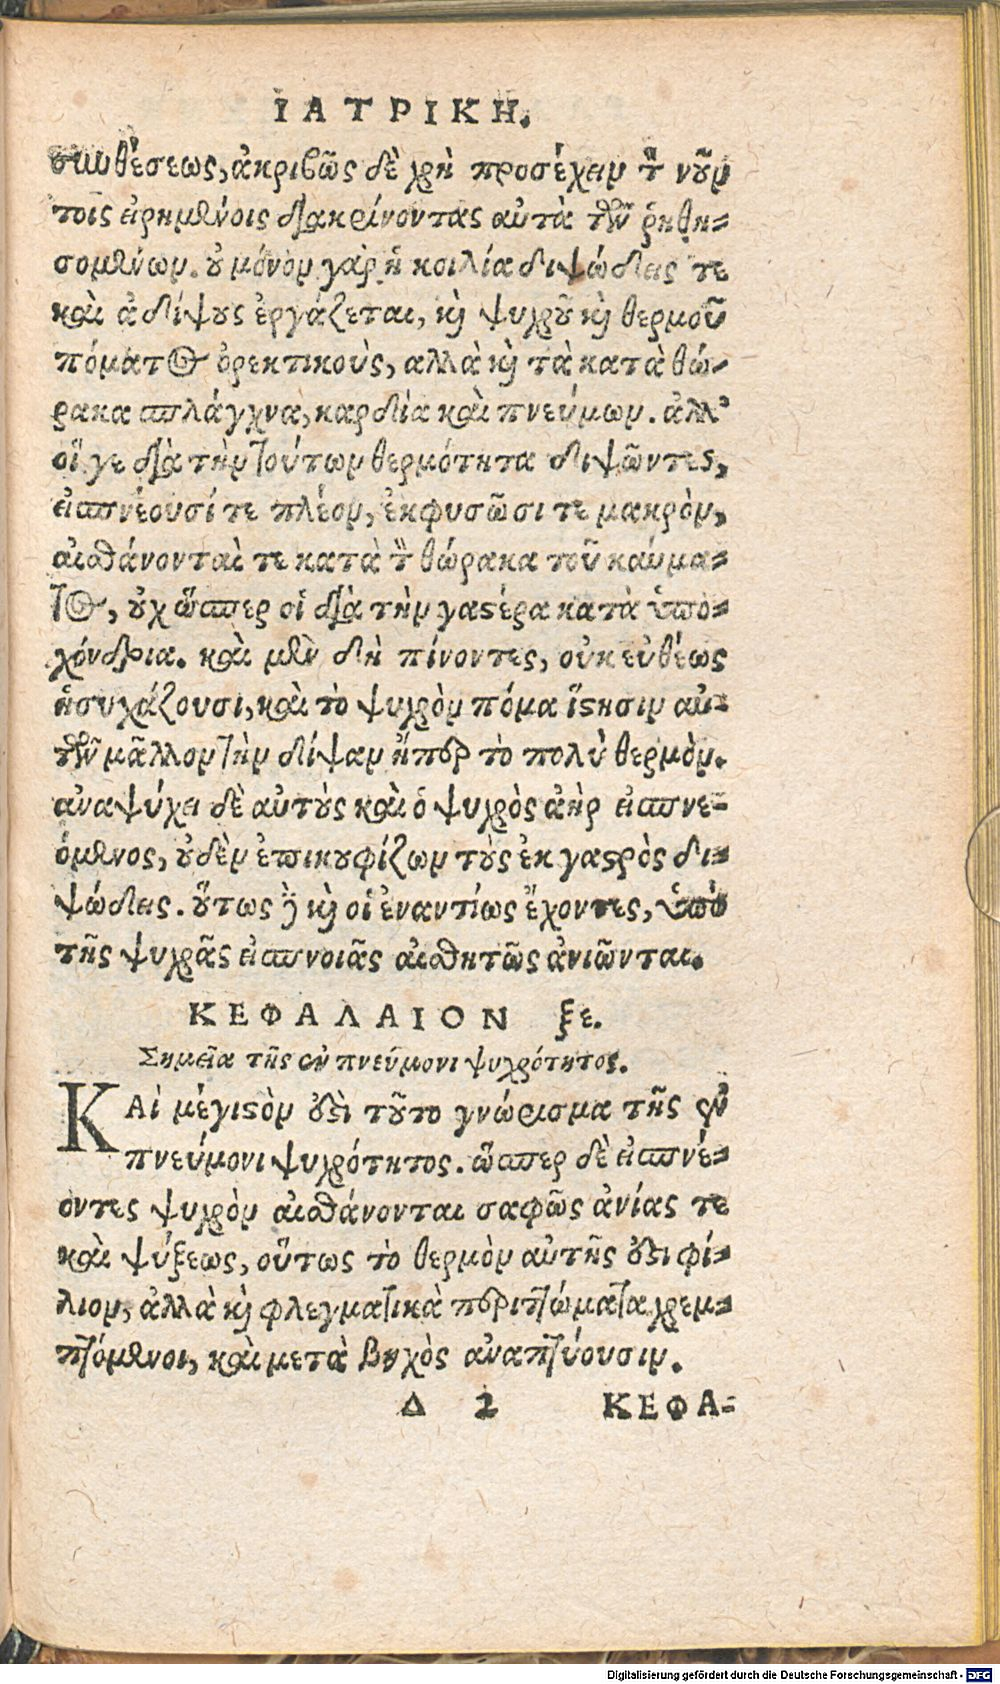 ΙΑΤΡΙΚΗ.
συνθέσεως, ἀκριβῶς δὲ χρὴ προσέχειν τ̀ νοῦν
τοῖς εἰρημένοις διακρίνοντας αὐτὰ τῶν ῥηθη-
σομένων. οὐ μόνον γὰρ ἡ κοιλία διψώδεις τε
καὶ ἀδίψους ἐργάζεται, καὶ ψυχροῦ καὶ θερμοῦ
πόματος ὀρεκτικοὺς, αλλὰ καὶ τὰ κατὰ θώ-
ρακα σπλάγχνα, καρδία καὶ πνεύμων. ἀλλ’
οἵ γε διὰ τὴν τούτων θερμότητα διψῶντες,
εἰσπνέουσί τε πλέον, ἐκφυσῶσι τε μακρὸν,
αἰσθάνονταί τε κατὰ τ̀ θώρακα τοῦ καύμα-
τος, οὐχ ὥσπερ οἱ διὰ τὴν γαστέρα κατὰ ὑπο-
χόνδρια. καὶ μὲν δὴ πίνοντες, οὐκ εὐθέως
ἡσυχάζουσι, καὶ τὸ ψυχρὸν πόμα ἵστησιν αὐ-
τῶν μᾶλλον τὴν δίψαν ἤπερ τὸ πολὺ θερμὸν.
ἀναψύχει δὲ αὐτοὺς καὶ ὁ ψυχρὸς ἀὴρ εἰσπνε-
όμενος, οὐδὲν ἐπικουφίζων τοὺς ἐκ γαστρὸς δι-
ψώδεις. οὕτως δὲ καὶ οἱ ἐναντίως ἔχοντες, ὑπὸ
τῆς ψυχρᾶς εἰσπνοιᾶς αἰσθητῶς ἀνιῶνται.
ΚΕΦΑΛΑΙΟΝ ξε.
Σημεῖα τῆς ἐν πνεύμονι ψυχρότητος.
ΚΑὶ μέγιστὸν ἐστὶ τοῦτο γνώρισμα τῆς ἐν
πνεύμονι ψυχρότητος. ὥσπερ δὲ εἰσπνέ-
οντες ψυχρὸν αἰσθάνονται σαφῶς ἀνίας τε
καὶ ψύξεως, οὕτως τὸ θερμὸν αὐτῆς ἐστι φί-
λιον, ἀλλὰ καὶ φλεγματικὰ περιττώματα χρεμ-
πτόμενοι, καὶ μετὰ βηχὸς ἀναπτύουσιν.
Δ 2 ΚΕΦΑ-
Digitalisierung gefördert durch die Deutsche Forschungsgemeinschaft - DFG